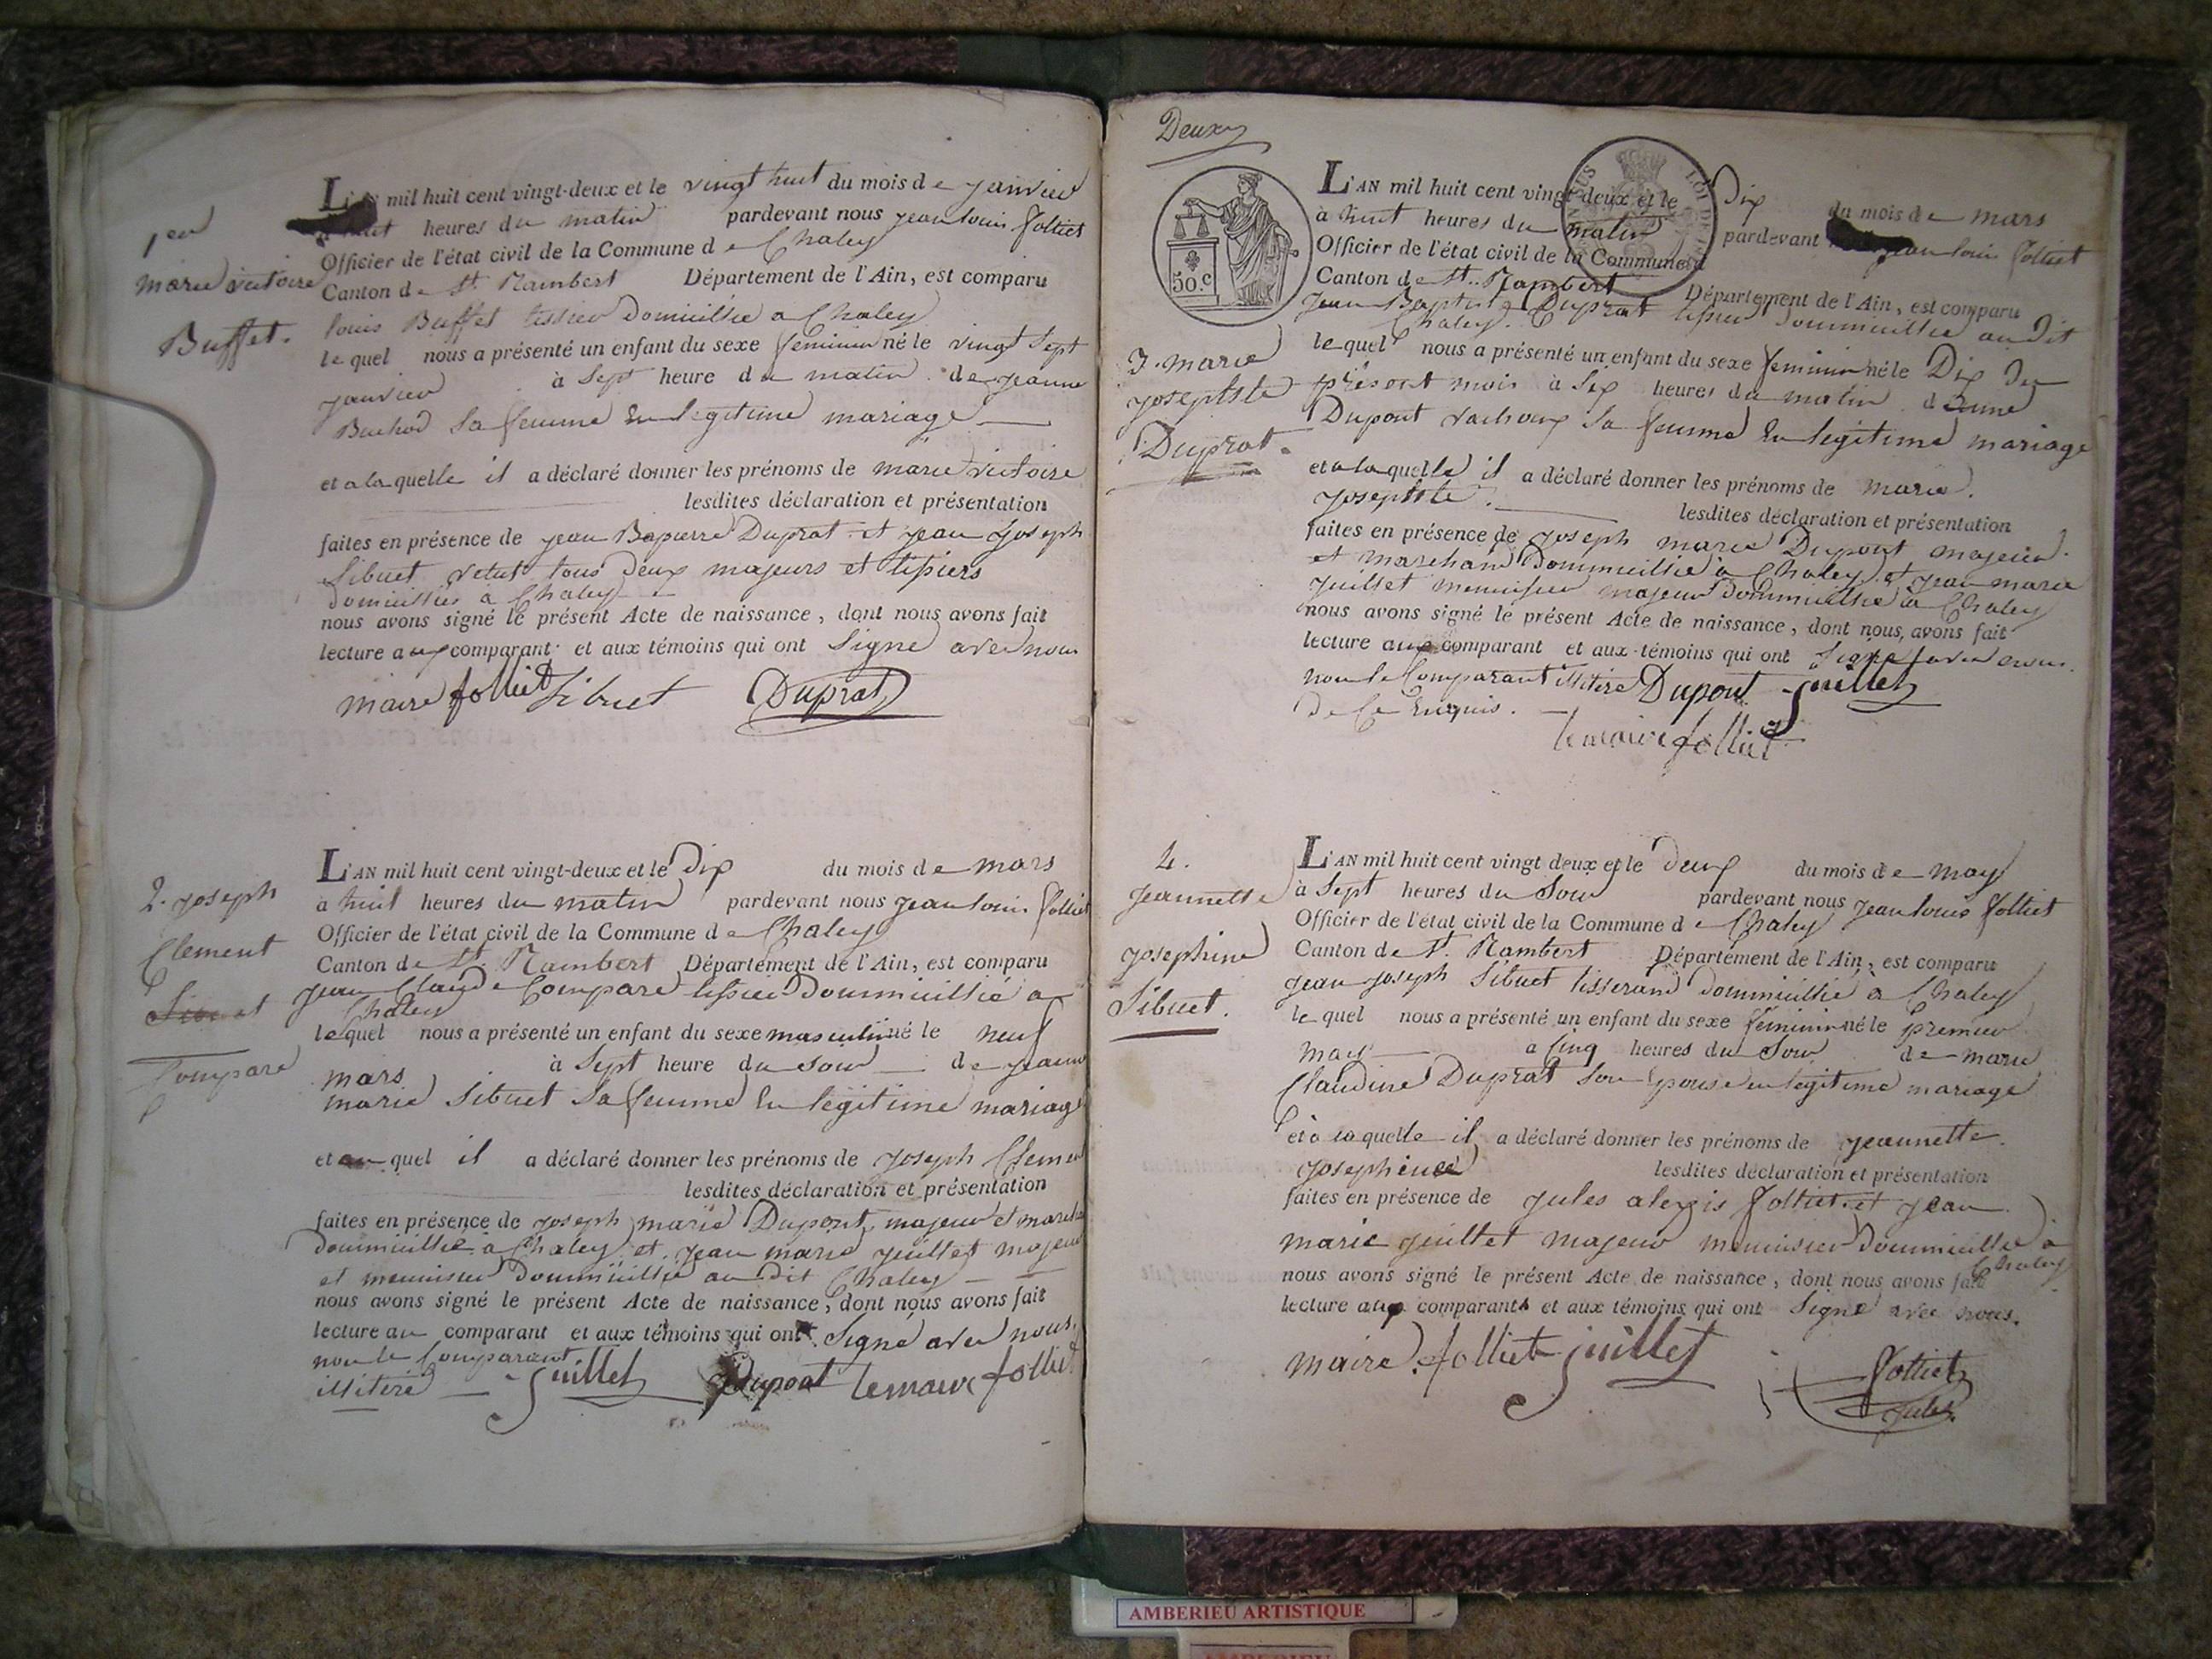 1er
marie victoire
Buffet.
L'AN mil huit cent vingt-deux et le vingt huit du mois de janvier
à huit heures du matin pardevant nous jean louis folliet
Officier de l'état civil de la Commune de Chaley
Canton de St Rambert Département de l'Ain, est comparu
louis Buffet tissier domicillié a Chaley
le quel nous a présenté un enfant du sexe feminin né le vingt sept
janvier à sept heure du matin de jeanne
Buchod sa femme En legitime mariage
et a la quelle il a déclaré donner les prénoms de marie victoire
lesdites déclaration et présentation
faites en présence de jean Duprat et jean joseph
Sibuet tous deux majeurs et tissiers
domicilliés à Chaley
nous avons signé le présent Acte de naissance, dont nous avons fait
lecture aux comparant et aux témoins qui ont signé avec nous
maire folliet Sibuet Duprat
2. joseph
Clement
Compare
L'AN mil huit cent vingt-deux et le Dix du mois de mars
à huit heures du matin pardevant nous jean louis folliet
Officier de l'état civil de la Commune de Chaley
Canton de St. Rambert Département de l'Ain, est comparu
jean Claude Compare tissier Dommicillié a
Chaley
le quel nous a présenté un enfant du sexe masculin né le neuf
mars à sept heure du soir de jeanne
marie Sibuet sa femme En legitime mariage
et au quel il a déclaré donner les prénoms de joseph Clement
lesdites déclaration et présentation
faites en présence de joseph marie Dupont, majeur et marchand
dommicillié à Chaley et jean marie juillet majeur
et menuisier Dommicillié au dit Chaley
nous avons signé le présent Acte de naissance, dont nous avons fait
lecture au comparant et aux témoins qui ont signé avec nous.
non le Comparant
illiteré juillet Dupont le maire folliet
Deux
50.c
3. marie
josephte
Duprat.
L'AN mil huit cent vingt-deux et le Dix du mois de mars
à huit heures du matin pardevant jean louis folliet
Officier de l'état civil de la Commune d
Canton de St. Rambert Département de l'Ain, est comparu
Jean Baptiste Duprat tissier Dommicillié au Dit
Chaley.
le quel nous a présenté un enfant du sexe feminin né le Dix du
présent mois à six heures du matin d'anne
Dupont sa femme En legitime mariage
et a la quelle il a déclaré donner les prénoms de marie.
josephte. lesdites déclaration et présentation
faites en présence de joseph marie Dupont majeur
et marchand Dommicillié à Chaley et jean marie
juillet menuisier majeur Dommicillié à Chaley
nous avons signé le présent Acte de naissance, dont nous avons fait
lecture aux comparant et aux témoins qui ont signé avec nous.
non le Comparant illitere Dupont juillet
De Ce Enquis.
le maire folliet
4.
jeannette
josephine
Sibuet.
L'AN mil huit cent vingt deux et le deux du mois de may
à sept heures du soir pardevant nous jean louis folliet
Officier de l'état civil de la Commune de Chaley
Canton de St. Rambert Département de l'Ain, est comparu
jean joseph Sibuet tisserand dommicillié à Chaley
le quel nous a présenté un enfant du sexe feminin né le premier
may à cinq heures du soir de marie
Claudine Duprat son Epouse en legitime mariage
et à la quelle il a déclaré donner les prénoms de jeannette.
josephine lesdites déclaration et présentation
faites en présence de jules alexis folliet et jean
marie juillet majeur menuisier Dommicillié à
Chaley
nous avons signé le présent Acte de naissance, dont nous avons fait
lecture aux comparants et aux témoins qui ont signé avec nous.
maire folliet juillet folliet
jules
AMBERIEU ARTISTIQUE
AMBERIEU